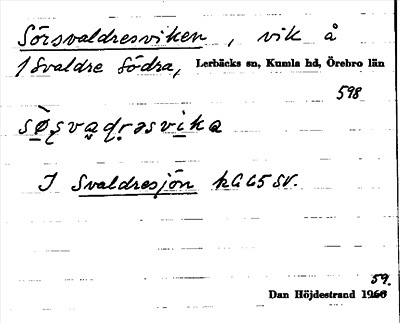 Sörsvaldresviken, vik å
1 Svaldre Södra, Lerbäcks sn, Kumla hd, Örebro län
598
I Svaldresjön hC 65 SV.
59.
Dan Höjdestrand 1960